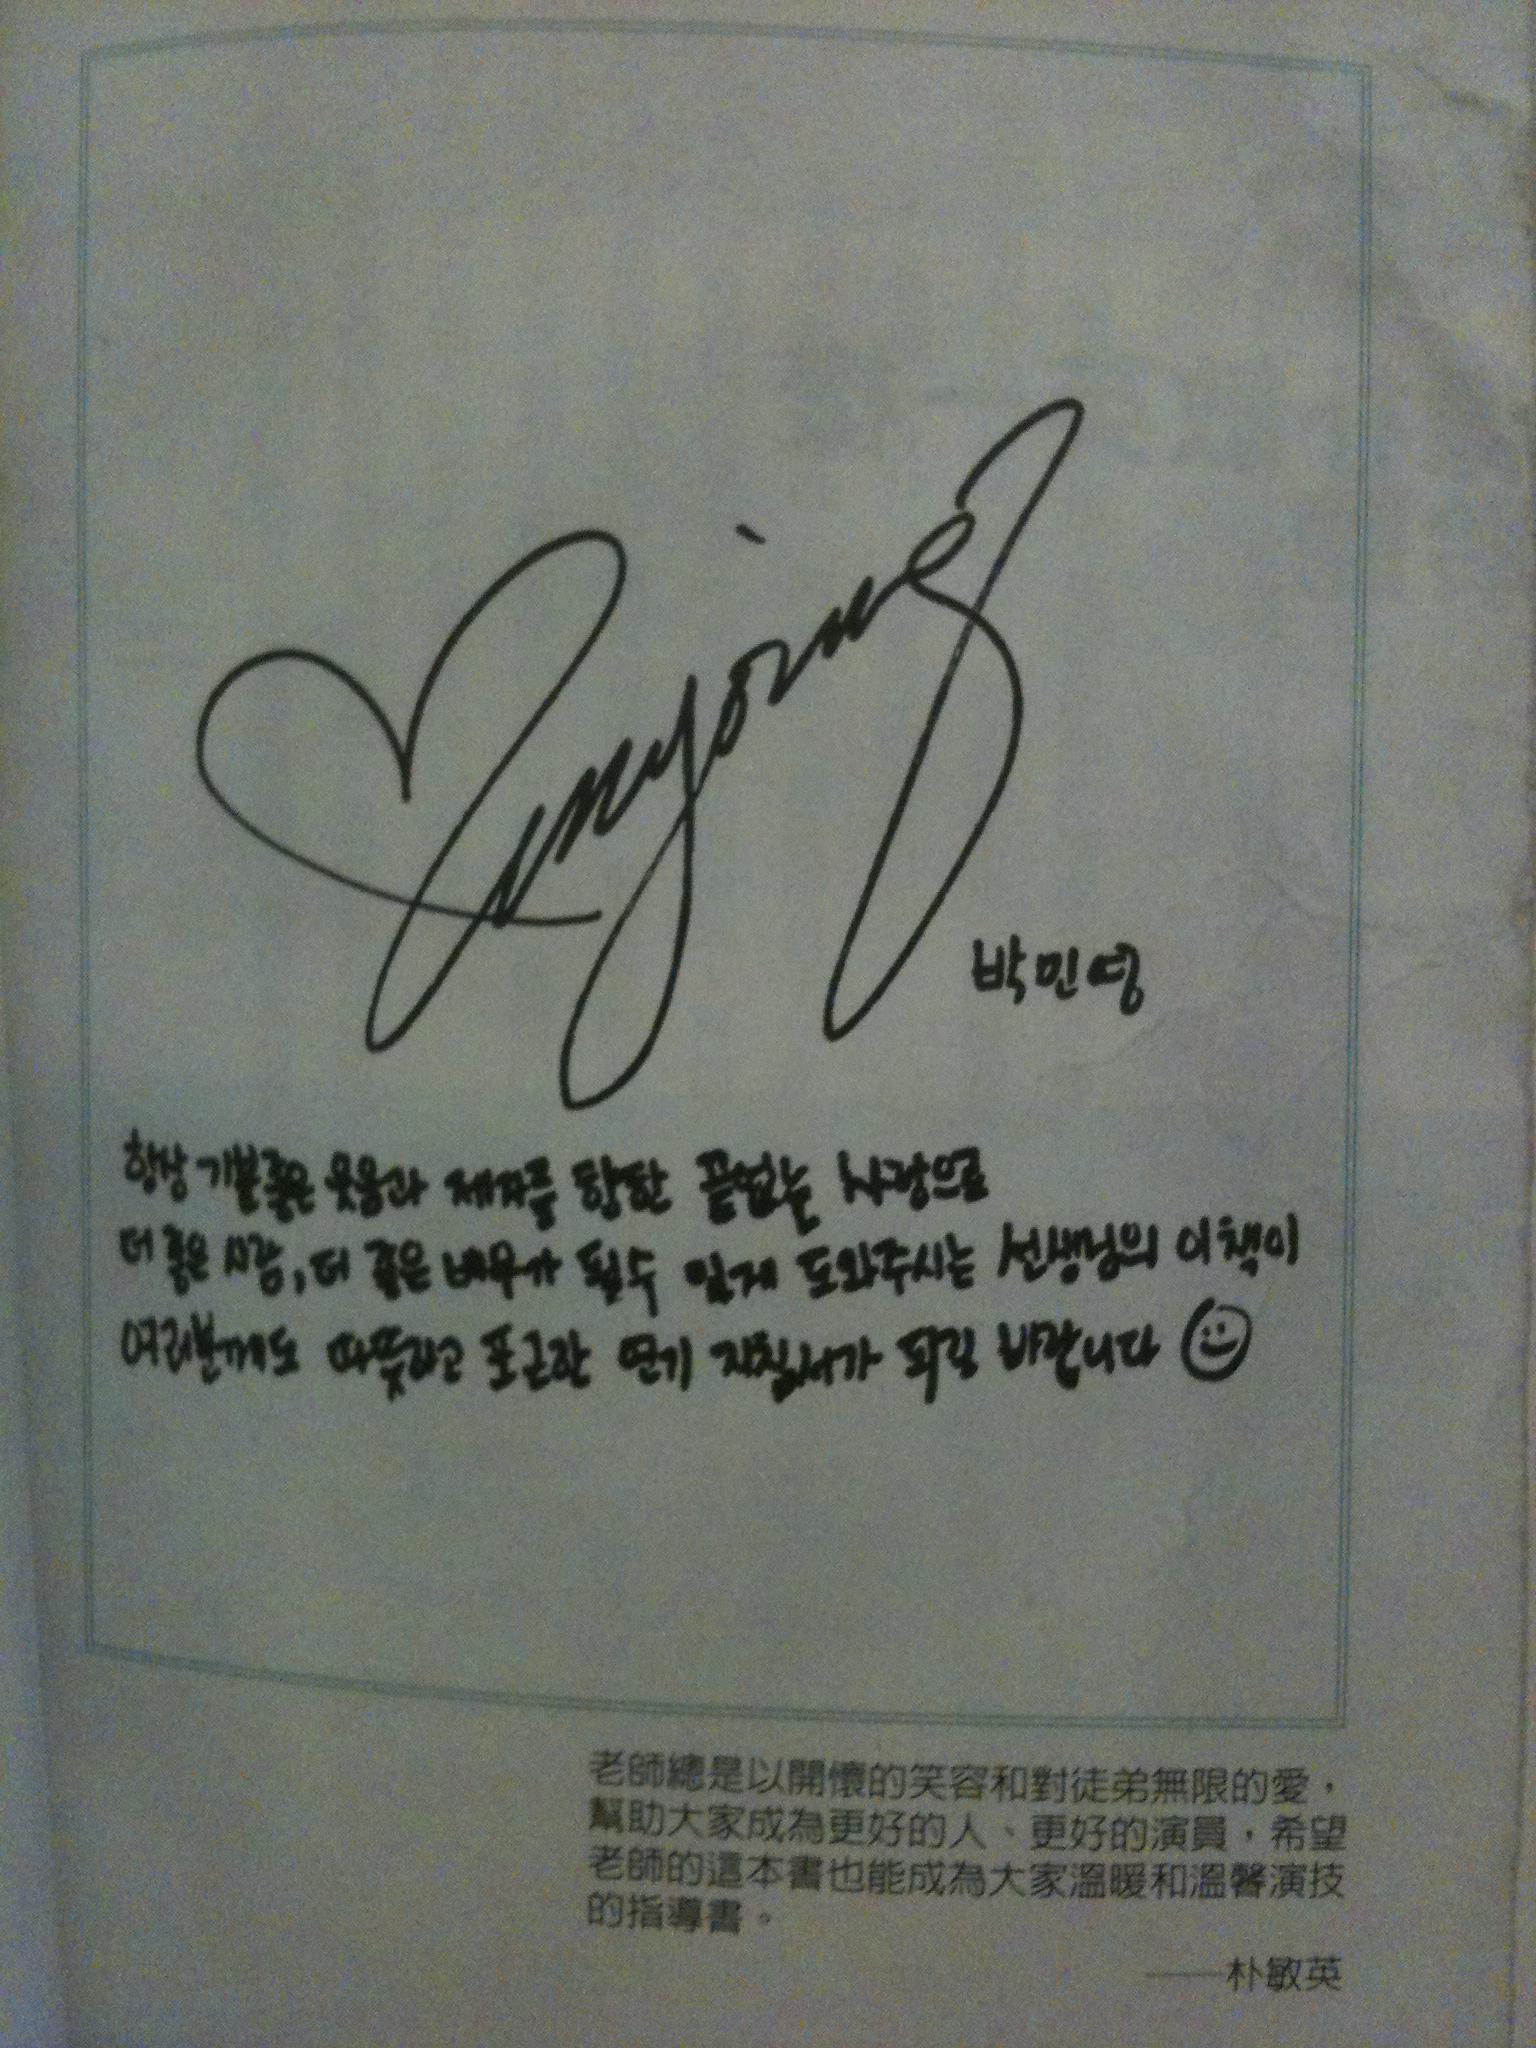 Minyoung
박민영
항상 기분좋은 웃음과 제자를 향한 끝없는 사랑으로
더 좋은 사람, 더 좋은 배우가 될수 있게 도와주시는 선생님의 이책이
여러분께도 따뜻하고 포근한 연기 지침서가 되길 바랍니다
老師總是以開懷的笑容和對徒弟無限的愛，
幫助大家成為更好的人、更好的演員，希望
老師的這本書也能成為大家溫暖和溫馨演技
的指導書。
——朴敏英